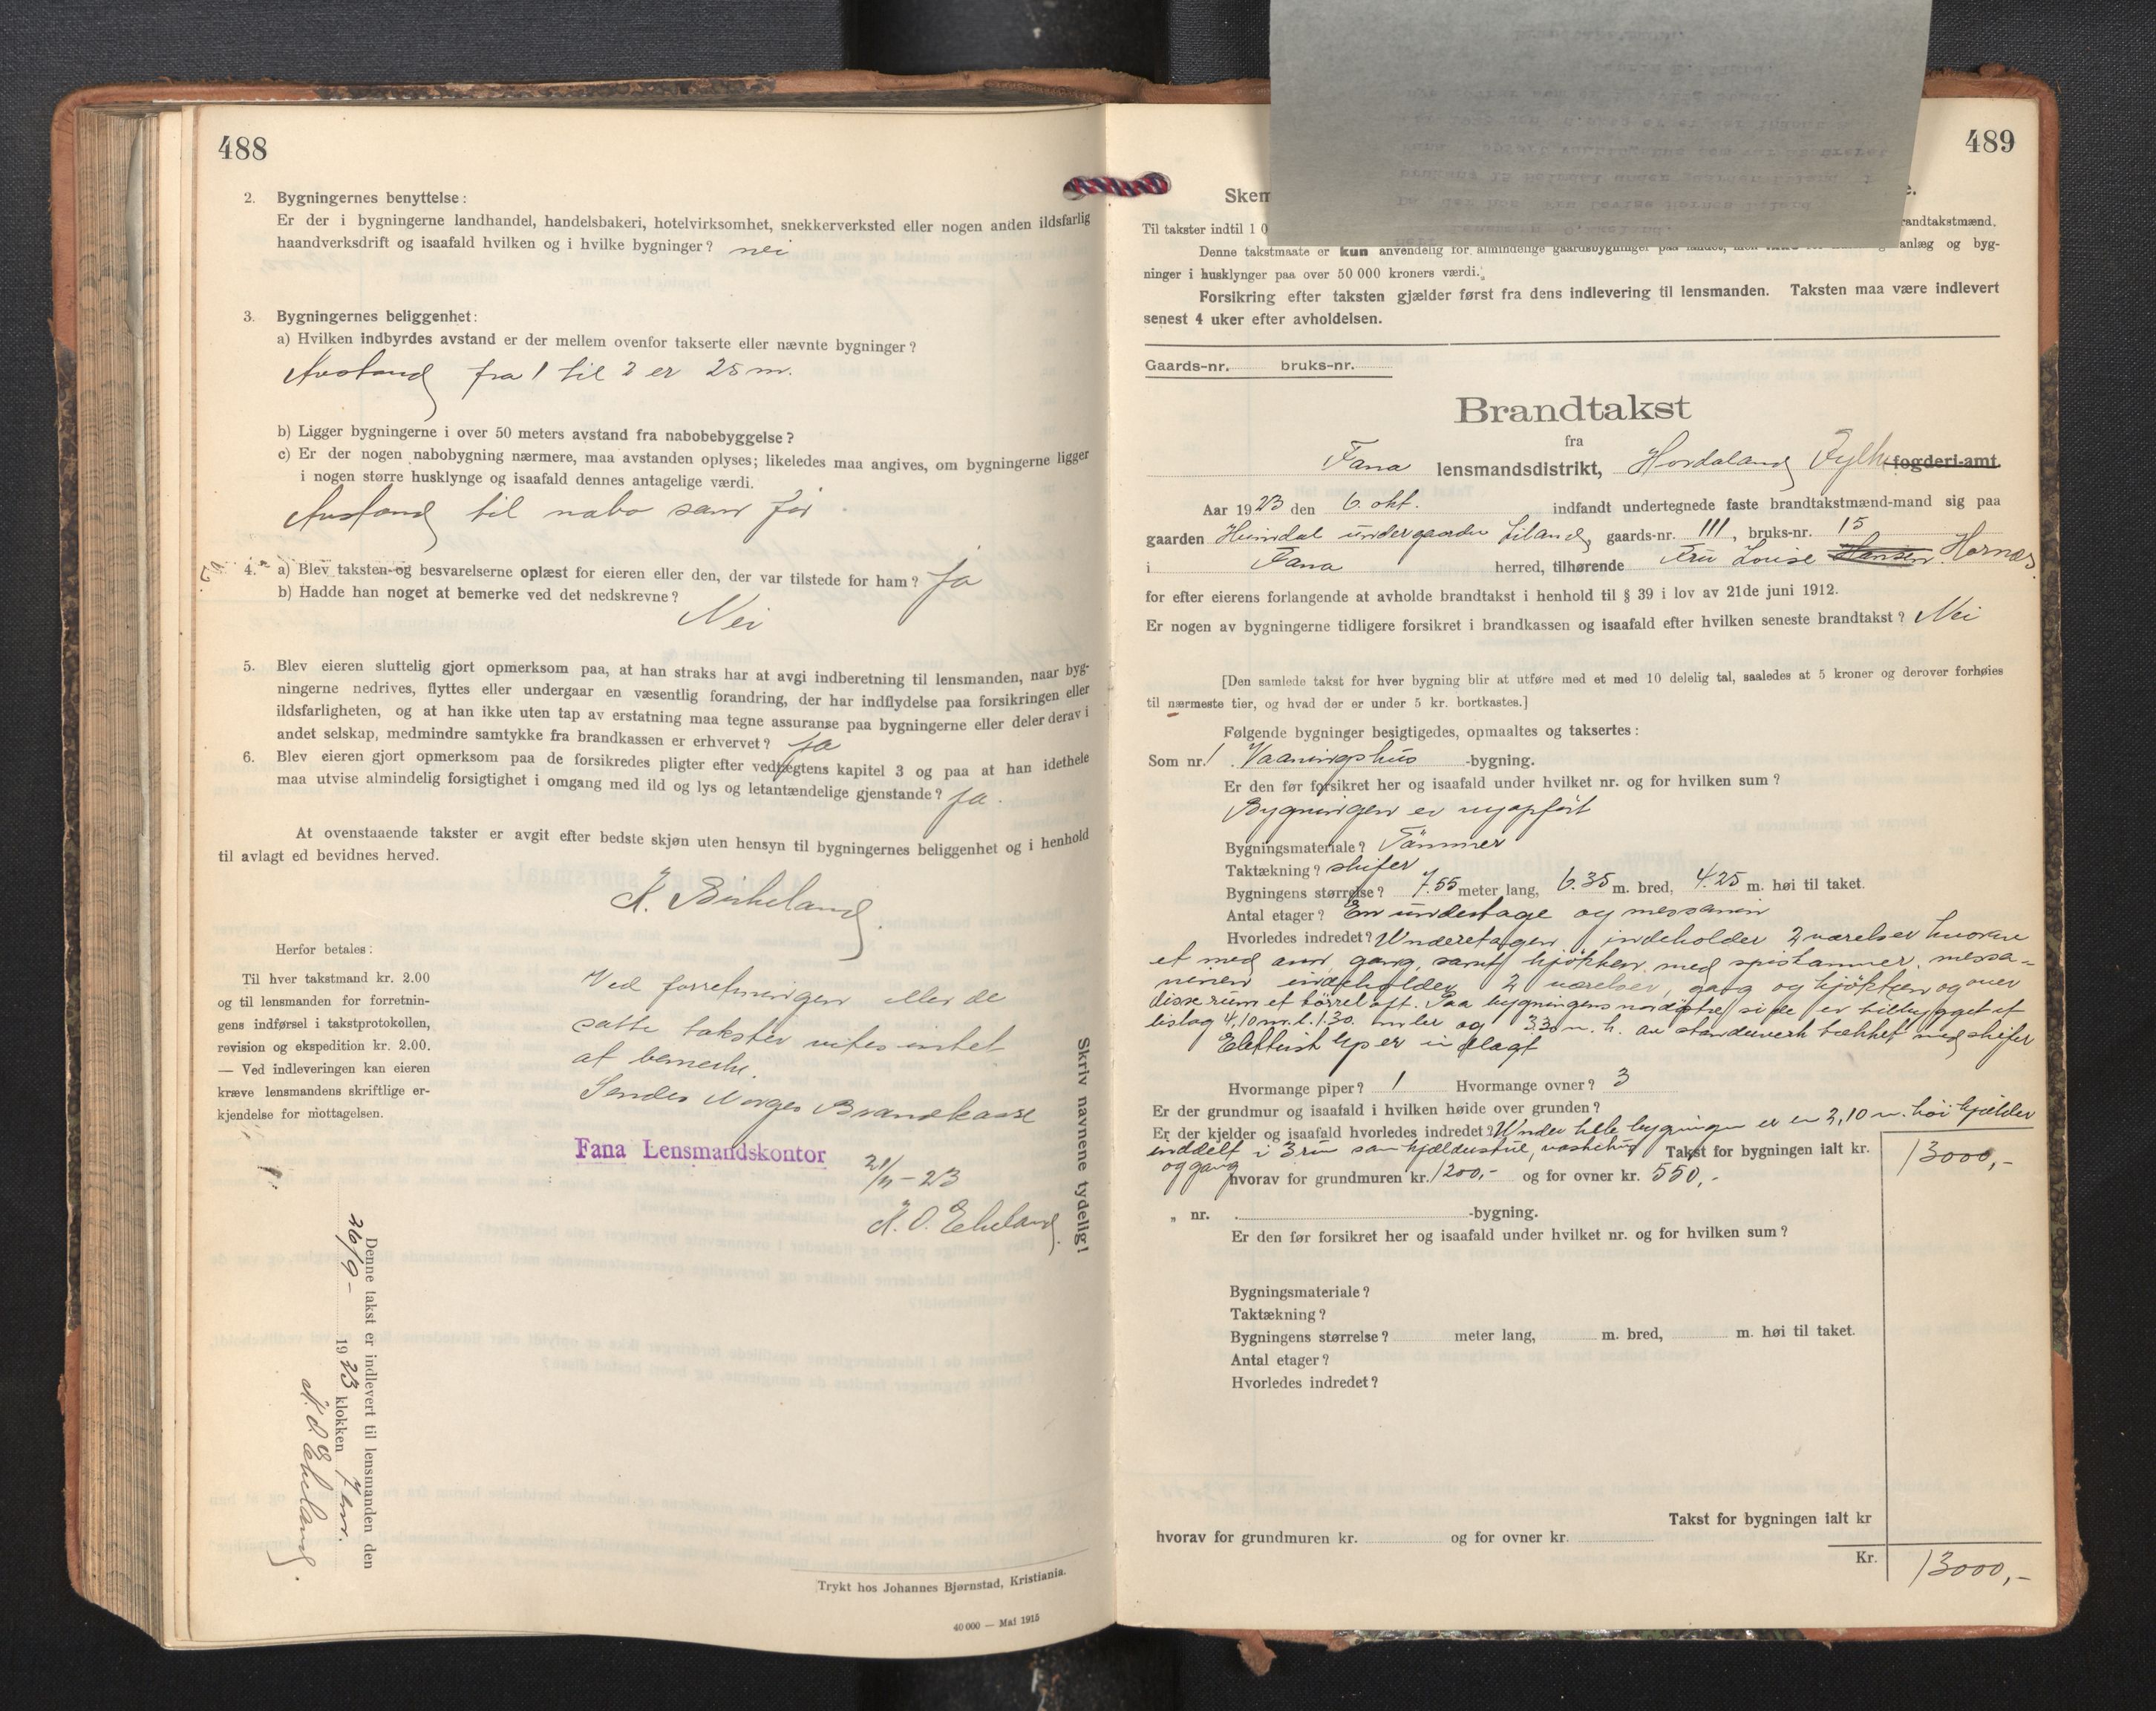 488
2. Bygningernes benyttelse:
Er der i bygningerne landhandel, handelsbakeri, hotelvirksomhet, snekkerverksted eller nogen anden ildsfarlig
haandverksdrift og isaafald hvilken og i hvilke bygninger? nei
3. Bygningernes beliggenhet:
a) Hvilken indbyrdes avstand er der mellem ovenfor takserte eller nævnte bygninger?
Avstand fra 1 til 2 er 25 m.
b) Ligger bygningerne i over 50 meters avstand fra nabobebyggelse?
c) Er der nogen nabobygning nærmere, maa avstanden oplyses; likeledes maa angives, om bygningerne ligger
i nogen større husklynge og isaafald dennes antagelige værdi.
Avstand til nabo som før.
4. a) Blev taksten og besvarelserne oplæst for eieren eller den, der var tilstede for ham? Ja
b) Hadde han noget at bemerke ved det nedskrevne?
Nei
5. Blev eieren sluttelig gjort opmerksom paa, at han straks har at avgi indberetning til lensmanden, naar byg-
ningerne nedrives, flyttes eller undergaar en væsentlig forandring, der har indflydelse paa forsikringen eller
ildsfarligheten, og at han ikke uten tap av erstatning maa tegne assuranse paa bygningerne eller deler derav i
andet selskap, medmindre samtykke fra brandkassen er erhvervet? Ja
6. Blev eieren gjort opmerksom paa de forsikredes pligter efter vedtægtens kapitel 3 og paa at han idethele
maa utvise almindelig forsigtighet i omgang med ild og lys og letantændelige gjenstande? Ja.
At ovenstaaende takster er avgit efter bedste skjøn uten hensyn til bygningernes beliggenhet og i henhold
til avlagt ed bevidnes herved.
K. Birkeland.
Herfor betales:
Til hver takstmand kr. 2.00
og til lensmanden for forretnin-
gens indførsel i takstprotokollen,
revision og ekspedition kr. 2.00.
— Ved indleveringen kan eieren
kræve lensmandens skriftlige er-
kjendelse for mottagelsen.
Ved forretningen eller de
satte takster vites intet
at bemerke.
Sendes Norges Brandkasse
Fana Lensmandskontor 21/11-23
Skriv navnene tydelig!
Denne takst er indlevert til lensmanden den
26/9- 1923 klokken 7 em.
Trykt hos Johannes Bjørnstad, Kristiania.
40 000 — Mai 1915
489
Skem
e.
Til takster indtil 1 0 randtakstmænd.
Denne takstmaate er kun anvendelig for almindelige gaardsbygninger paa landet, men anlæg og byg-
ninger i husklynger paa over 50 000 kroners værdi.
Forsikring efter taksten gjælder først fra dens indlevering til lensmanden. Taksten maa være indlevert
senest 4 uker efter avholdelsen.
Gaards-nr. bruks-nr.
Brandtakst
fra
Fana lensmandsdistrikt, Hordaland Fylke fogderi-amt.
Aar 1923 den 6. okt. indfandt undertegnede faste brandtakstmænd-mand sig paa
gaarden Heimdal under gaarden Liland, gaards-nr. 111, bruks-nr. 15
i Fana herred, tilhørende Fru Louise Hansen Hornæs
for efter eierens forlangende at avholde brandtakst i henhold til § 39 i lov av 21de juni 1912.
Er nogen av bygningerne tidligere forsikret i brandkassen og isaafald efter hvilken seneste brandtakst? Nei
[Den samlede takst for hver bygning blir at utføre med et med 10 delelig tal, saaledes at 5 kroner og derover forhøies
til nærmeste tier, og hvad der er under 5 kr. bortkastes.]
Følgende bygninger besigtigedes, opmaaltes og taksertes:
Som nr. 1. Vaaningshus -bygning.
Er den før forsikret her og isaafald under hvilket nr. og for hvilken sum?
Bygningen er nyopført
Bygningsmateriale? Tømmer
Taktækning? skifer
Bygningens størrelse? 7.55 meter lang, 6.35 m. bred, 4.25 m. høi til taket.
Antal etager? En underetage og messanin
Hvorledes indredet? Underetagen indeholder 2 værelser hvorav
et med anr, gang, samt kjøkken med spiskammer. messa-
ninen indeholder 2 værelser, gang og kjøkken og over
disse rum et tørreloft. Paa bygningens nordøstre side er tilbygget et
bislag 4,10 m. l. 1.30 m. br. og 3.30 m. h. av standerverk tækket med skifer
Elektrisk lys er indlagt
Hvormange piper? 1 Hvormange ovner? 3
Er der grundmur og isaafald i hvilken høide over grunden?
Er der kjelder og isaafald hvorledes indredet? Under hele bygningen er en 2,10 m. høi kjelder
inddelt i 3 rum som kjelderstue, vaskehus Takst for bygningen ialt kr. 13000,-
og gang
hvorav for grundmuren kr. 1200,- og for ovner kr. 550,-
„ nr. -bygning.
Er den før forsikret her og isaafald under hvilket nr. og for hvilken sum?
Bygningsmateriale?
Taktækning?
Bygningens størrelse? meter lang, m. bred, m. høi til taket.
Antal etager?
Hvorledes indredet?
Takst for bygningen ialt kr
hvorav for grundmuren kr. og for ovner kr.
Kr. 13000,-